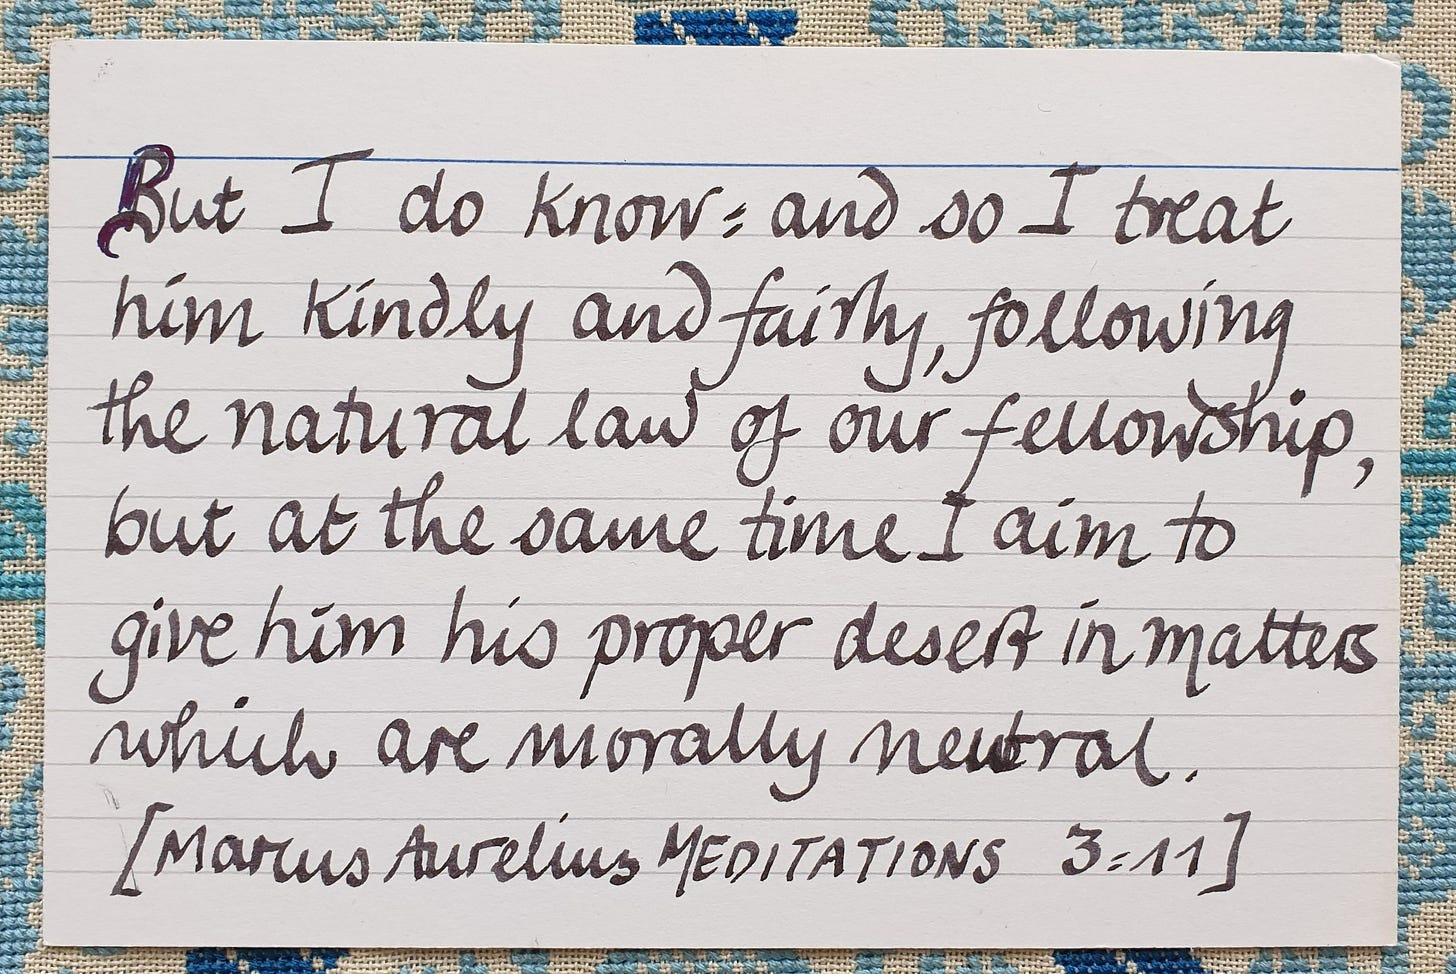 But I do know: and so I treat
him kindly and fairly, following
the natural law of our fellowship,
but at the same time I aim to
give him his proper desert in matters
which are morally neutral.
[Marcus Aurelius MEDITATIONS 3:11]